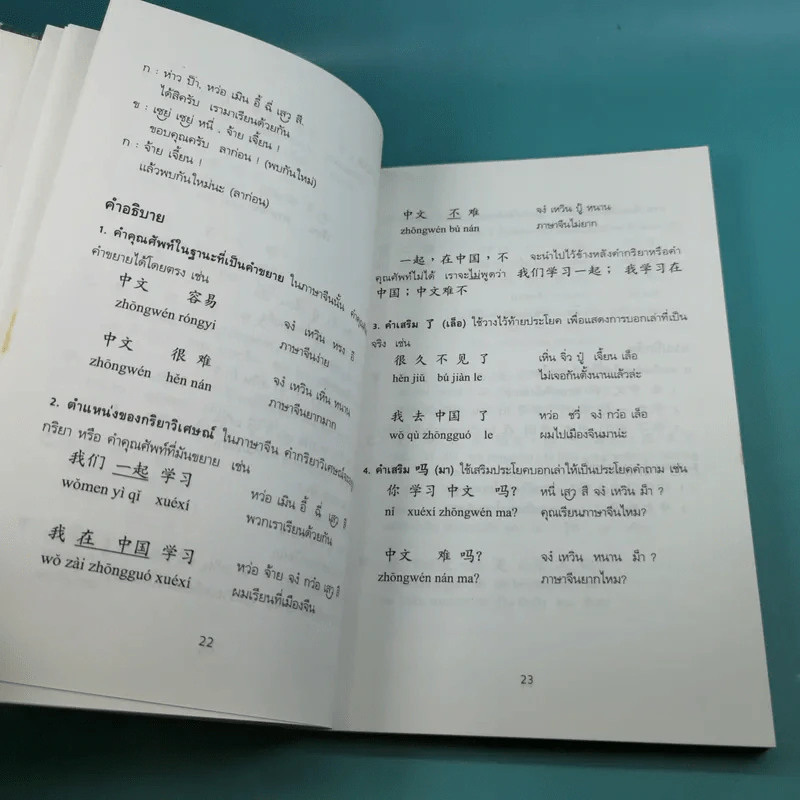 ก : ห่าว ป๊า, หว่อ เมิน อี้ ฉี่ เสฺวฺ สี.
ได้สิครับ เรามาเรียนด้วยกัน
ข : เซฺยฺ เซฺยฺ หนี่ . จ้าย เจี้ยน !
ขอบคุณครับ ลาก่อน ! (พบกันใหม่)
ก : จ้าย เจี้ยน !
แล้วพบกันใหม่นะ (ลาก่อน)
คำอธิบาย
1. คำคุณศัพท์ในฐานะที่เป็นคำขยาย ในภาษาจีนนั้น
คำขยายได้โดยตรง เช่น
中文 容易
zhōngwén róngyi
จง เหวิน หรง อี้
ภาษาจีนง่าย
中文 很 难
zhōngwén hěn nán
จง เหวิน เหิ่น หนาน
ภาษาจีนยากมาก
2. ตำแหน่งของกริยาวิเศษณ์ ในภาษาจีน คำกริยาวิเศษณ์
กริยา หรือ คำคุณศัพท์ที่มันขยาย เช่น
我们 一起 学习
wǒmen yì qǐ xuéxí
หว่อ เมิน อี้ ฉี่ เสฺวฺ สี
พวกเราเรียนด้วยกัน
我 在 中国 学习
wǒ zài zhōngguó xuéxí
หว่อ จ้าย จง กว๋อ เสฺวฺ สี
ผมเรียนที่เมืองจีน
22
中文 不 难
zhōngwén bú nán
จง เหวิน ปู๋ หนาน
ภาษาจีนไม่ยาก
一起，在中国，不 จะนำไปไว้ข้างหลังคำกริยาหรือคำ
คุณศัพท์ไม่ได้ เราจะไม่พูดว่า 我们学习一起；我学习在
中国；中文难不
3. คำเสริม 了 (เลือ) ใช้วางไว้ท้ายประโยค เพื่อแสดงการบอกเล่าที่เป็น
จริง เช่น
很 久 不 见 了
hěn jiǔ bú jiàn le
เหิ่น จิ่ว ปู๋ เจี้ยน เลือ
ไม่เจอกันตั้งนานแล้วล่ะ
我 去 中国 了
wǒ qù zhōngguó le
หว่อ ชวี่ จง กว๋อ เลือ
ผมไปเมืองจีนมาน่ะ
4. คำเสริม 吗 (มา) ใช้เสริมประโยคบอกเล่าให้เป็นประโยคคำถาม เช่น
你 学习 中文 吗?
nǐ xuéxí zhōngwén ma?
หนี่ เสฺวฺ สี จง เหวิน ม๊า ?
คุณเรียนภาษาจีนไหม?
中文 难 吗?
zhōngwén nán ma?
จง เหวิน หนาน ม๊า ?
ภาษาจีนยากไหม?
23